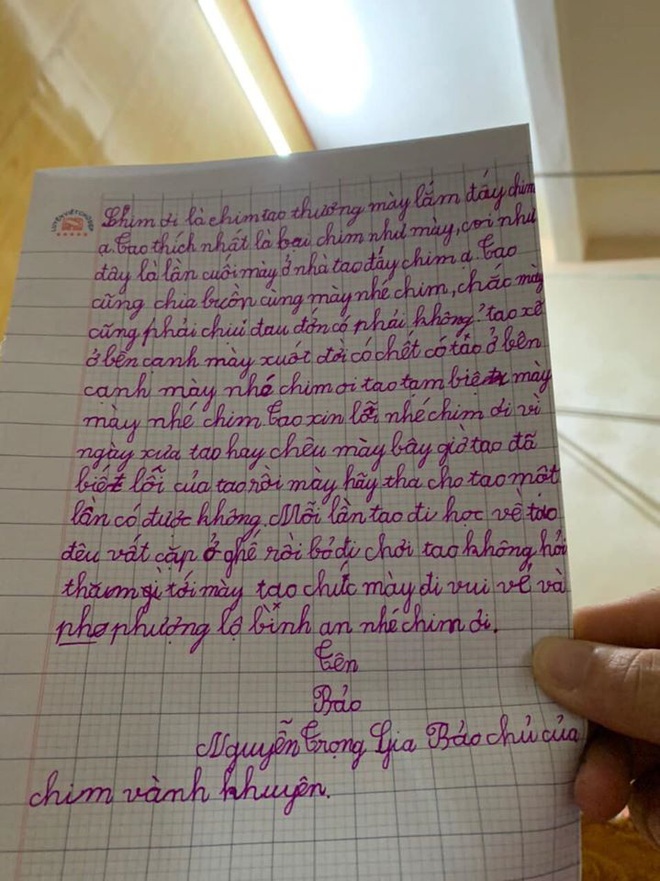 LUYỆN VIẾT CHỮ ĐẸP
Chim ơi là chim tao thương mày lắm đấy chim
ạ. Tao thích nhất là bại chim như mày, coi như
đây là lần cuối mày ở nhà tao đấy chim ạ. Tao
cũng chia buồn cùng mày nhé chim, chắc mày
cũng phải chịu đau đớn có phải không? tao xẽ
ở bên cạnh mày xuốt đời có chết có tao ở bên
cạnh mày nhé chim ơi tao tạm biệt mày
mày nhé chim. Tao xin lỗi nhé chim ơi vì
ngày xưa tao hay chêu mày bây giờ tao đã
biết lỗi của tao rồi mày hãy tha cho tao một
lần có được không. Mỗi lần tao đi học về tao
đều vất cặp ở ghế rồi bỏ đi chơi tao không hỏi
thăm gì tới mày tao chức mày đi vui vẻ và
phơ phượng lộ bình an nhé chim ơi.
Tên
Bảo
Nguyễn Trọng Gia Bảo chủ của
chim vành khuyên.